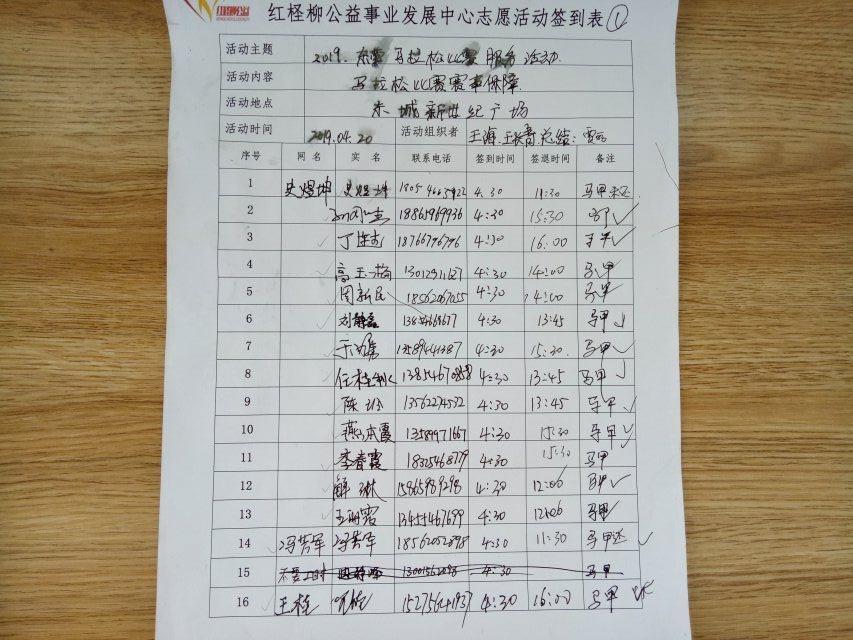 红柽柳公益事业发展中心志愿活动签到表①
活动主题 2019. 东营马拉松比赛服务活动.
活动内容 马拉松比赛赛事保障.
活动地点 东城新世纪广场
活动时间 2019.04.20 活动组织者 王海.王长青.总结:
序号 网名 实名 联系电话 签到时间 签退时间 备注
1 史煜坤 史煜坤 4.30 11:30 马甲.未还
2 18861969936 4:30 15:30 ✓
3 丁 18766796796 4:30 16:00 ✓
4 高玉梅 4:30 14:00 马甲
5 周新民 18562067055 4:30 14:00 马甲
6 刘静磊 4:30 13:45 马甲
7 13589441387 4:30 15:30 马甲✓
8 任桂 13854670858 4:30 13:45 马甲
9 陈 13562274532 4:30 13:45 马甲✓
10 燕本霞 13589971667 4:30 15:30 马甲✓
11 李春霞 18325468779 4:30 15:30 马甲
12 解琳 15865989298 4:30 12:06 马甲✓
13 13455467699 4:30 12:06 马甲
14 冯芳军 冯芳军 18562052898 4:30 11:30 马甲还 ✓
15 13001562098 4:30 马甲
16 王桂 4:30 16:00 马甲